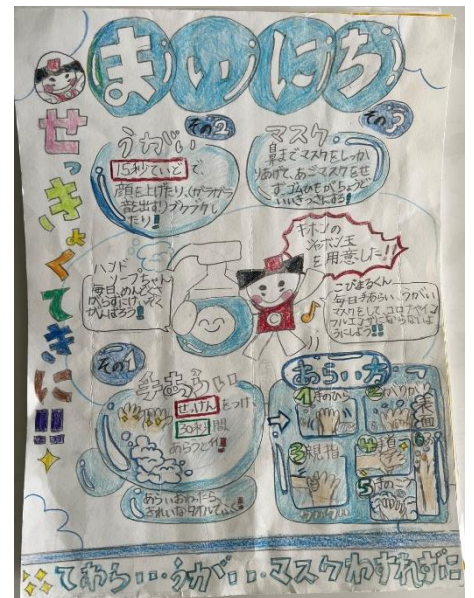 まいにち
せっきょくてきに!!
その2
うがい
15秒ていどで、
顔を上げたり、(がらがら
音を出す)ブクブクし
たり!
その3
マスク
鼻までマスクをしっか
りあげて、あごマスクをせ
ず、ゴムひもがちょうど
いいきつさにする!
キホンの
シャボン玉
を用意した!!
ハンド
ソープちゃん
毎日、めんどく
がらずにけいぞく
がんばろう!
こびまるくん
毎日手あらい、うがい
マスクをして、コロナやイン
フルエンザにならないよ
うにしよう!!
その1
手あらい
せっけんをつけ、
30秒間
あらうこと!
あらいおわったら、
きれいなタオルでふく!
あらい方
1手のひら
2手のこう
3親指
4手首
5
6
てあらい・・うがい・・マスクわすれずに